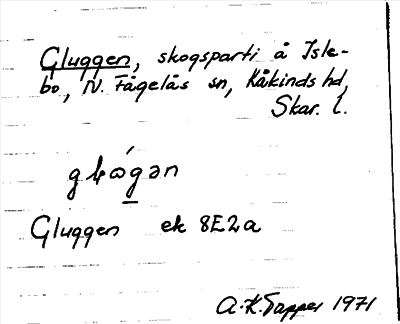 Gluggen, skogsparti å Isle-
bo, N. Fågelås sn, Kåkinds hd,
Skar. l.
Gluggen ek 8E2a
A.K. Tapper 1971